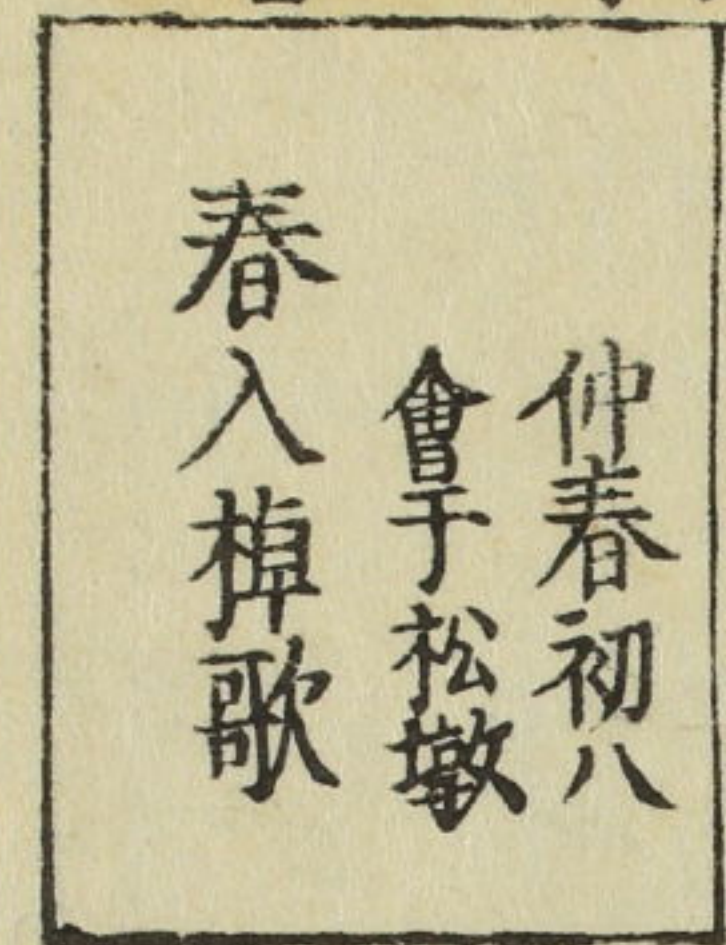 仲春初八
會于松墩
春入棹歌